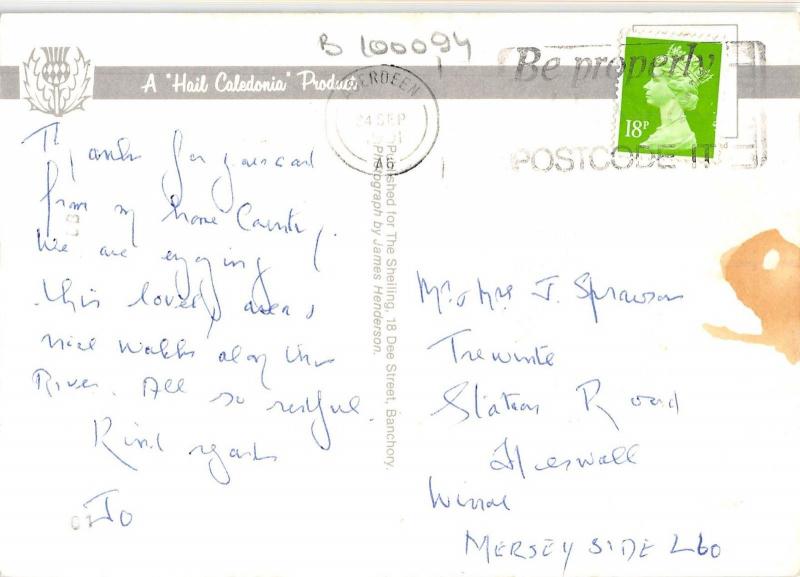 B 100094
A "Hail Caledonia" Product
ABERDEEN
24 SEP
AB
Be properly
POSTCODE IT
18P
Published for The Sheiling, 18 Dee Street, Banchory.
Photograph by James Henderson.
Thanks for your card
from my home County!
We are enjoying
this lovely area,
nice walks along the
River. All so restful.
Kind regards
Jo
Mr & Mrs J. Sprawson
Trewinte
Station Road
Heswall
Wirral
MERSEYSIDE L60